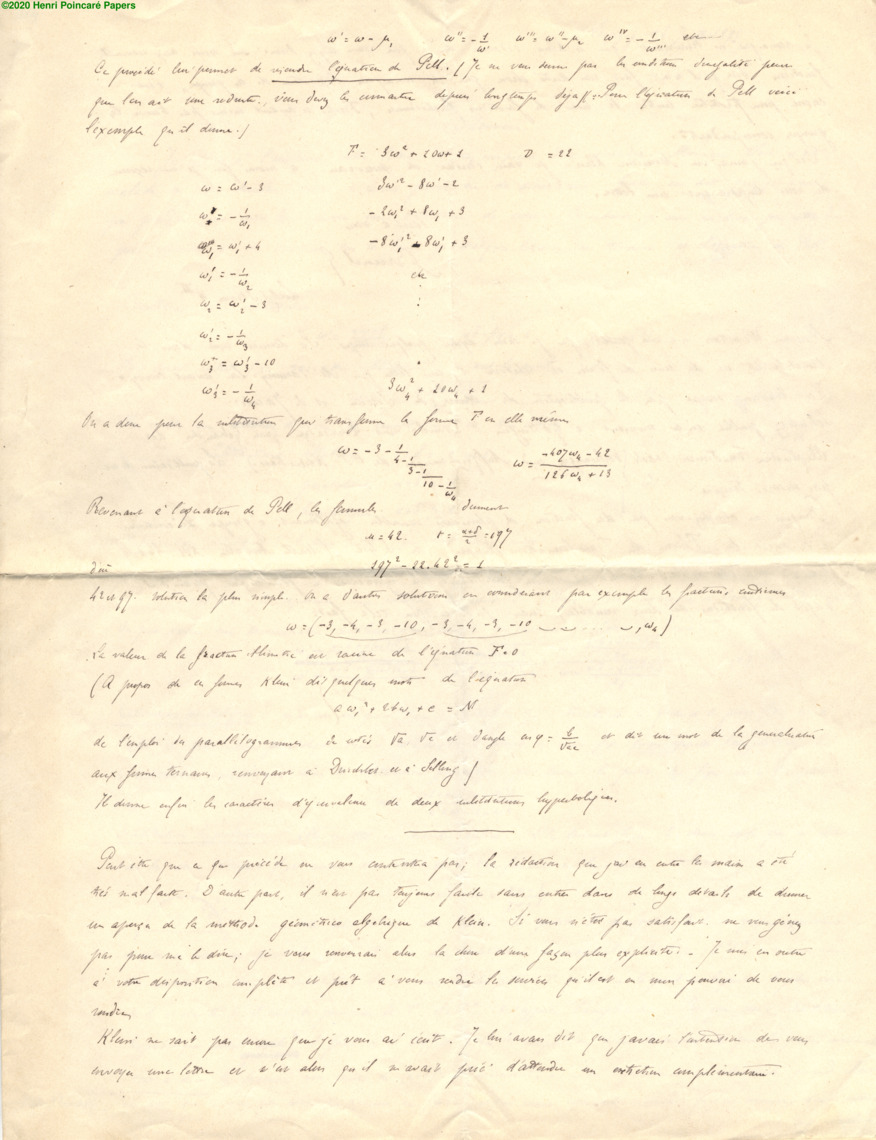 ©2020 Henri Poincaré Papers
ω' = ω - μ₁   ω'' = -1/ω'   ω''' = ω'' - μ₂   ω^IV = -1/ω'''   etc
Ce procédé lui permet de résoudre l'équation de Pell. (Je ne vous donne pas les conditions d'inégalité pour
que l'on ait une réduite, vous devez les connaître depuis longtemps déjà. Pour l'équation de Pell voici
l'exemple qu'il donne.)
F = 3ω² + 20ω + 1   D = 22
ω = ω' - 3   3ω'² - 8ω' - 2
ω' = -1/ω₁   -2ω₁² + 8ω₁ + 3
ω₁ = ω₁' + 4   -8ω₁'² - 8ω₁' + 3
ω₁' = -1/ω₂   etc
ω₂ = ω₂' - 3   :
ω₂' = -1/ω₃
ω₃ = ω₃' - 10
ω₃' = -1/ω₄   3ω₄² + 20ω₄ + 1
On a donc pour la substitution qui transforme la forme F en elle même
ω = -3 - 1/4 - 1/3 - 1/10 - 1/ω₄   ω = (-407ω₄ - 42)/(126ω₄ + 13)
Revenant à l'équation de Pell, les formules donnent
u = 42.   t = (α+δ)/2 = 197
d'où   197² - 22.42² = 1
42 et 97. solution la plus simple. On a d'autres solutions en considérant par exemple les fractions continues
ω = (-3, -4, -3, -10, -3, -4, -3, -10 ... , ω₄)
La valeur de la fraction illimitée est racine de l'équation F = 0
(A propos de ces formes Klein dit quelques mots de l'équation
aω₁² + 2bω₁ + c = M
de l'emploi du parallélogramme de cotés √a, √c et d'angle cos φ = b/√ac et dit un mot de la généralisation
aux formes ternaires, renvoyant à Dirichlet et à Selling.)
Il donne enfin les caractères d'équivalence de deux substitutions hyperboliques.
Peut être que ce qui précède ne vous contentera pas; la rédaction que j'ai eu entre les mains a été
très mal faite. D'autre part, il n'est pas toujours facile sans entrer dans de longs détails de donner
un aperçu de la méthode géométrico algébrique de Klein. Si vous n'êtes pas satisfait ne vous gênez
pas pour me le dire; je vous renverrai alors la chose d'une façon plus explicite. - Je suis en outre
à votre disposition complète et prêt à vous rendre les services qu'il est en mon pouvoir de vous
rendre.
Klein ne sait pas encore que je vous ai écrit. Je lui avais dit que j'avais l'intention de vous
envoyer une lettre et c'est alors qu'il m'avait prié d'attendre un entretien complémentaire.